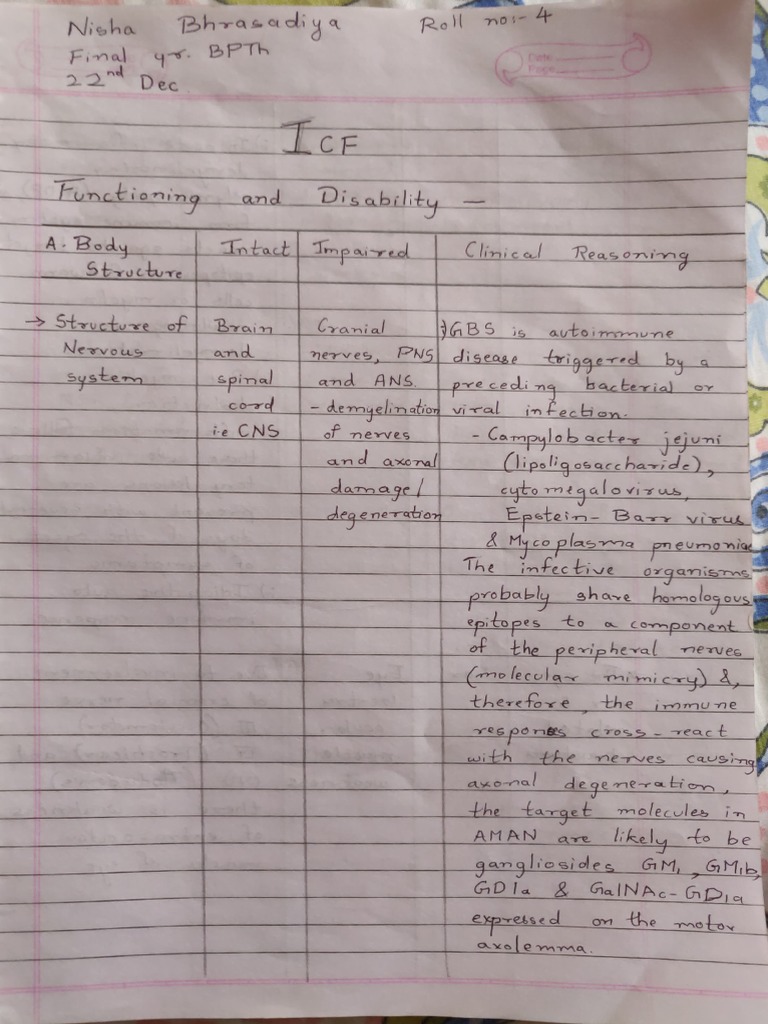 Nisha Bhrasadiya Roll no:- 4
Final yr. BPTh
22nd Dec
Date
Page
ICF
Functioning and Disability —
A. Body Structure
Intact
Impaired
Clinical Reasoning
→ Structure of
Nervous
system
Brain
and
spinal
cord
i.e CNS
Cranial
nerves, PNS
and ANS.
- demyelination
of nerves
and axonal
damage/
degeneration
GBS is autoimmune
disease triggered by a
preceding bacterial or
viral infection.
- Campylobacter jejuni
(lipoligosaccharide),
cytomegalovirus,
Epstein-Barr virus
& Mycoplasma pneumoniae
The infective organisms
probably share homologous
epitopes to a component
of the peripheral nerves
(molecular mimicry) &,
therefore, the immune
respones cross-react
with the nerves causing
axonal degeneration,
the target molecules in
AMAN are likely to be
gangliosides GM1, GM1b,
GD1a & GalNAc-GD1a
expressed on the motor
axolemma.